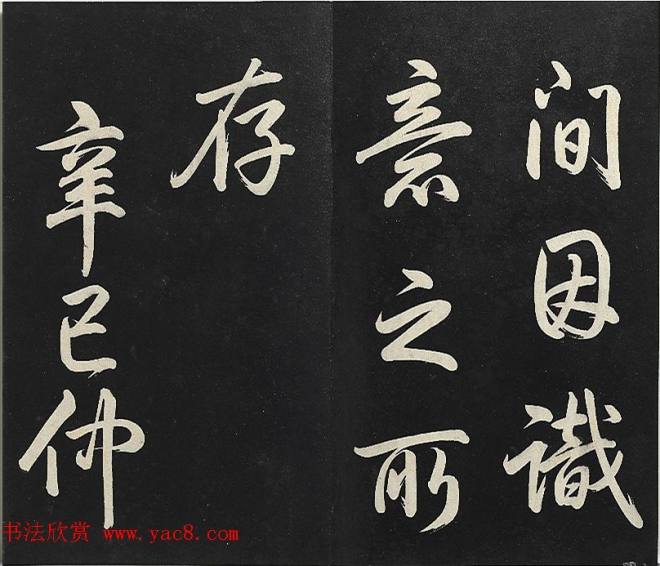 间因識
意之所
存
辛巳仲
书法欣赏 www.yac8.com